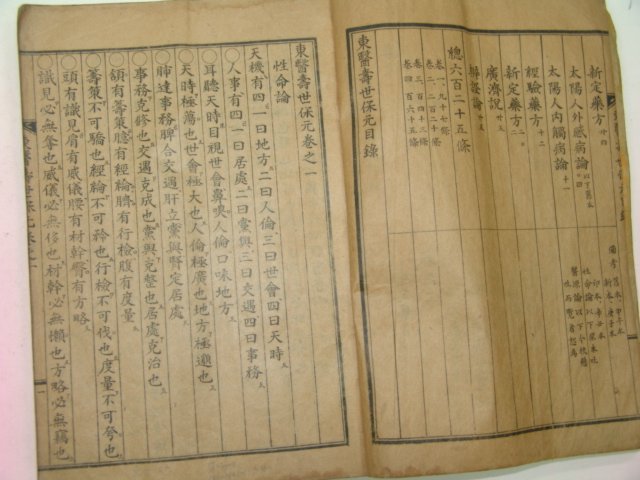 新定藥方 廿四
太陽人外感病論 以下舊本 四
太陽人內觸病論 十一
經驗藥方 十二
新定藥方 十三
廣濟說 廿三
辨證論 廿五
總六百二十五條
卷一 九十七條
卷二 一百二十條
卷三 二百四十三條
卷四 百六十五條
東醫壽世保元目錄
備考 舊本 甲午本
新本 庚子本
東醫壽世保元卷之一
性命論
○天機有四一曰地方二曰人倫三曰世會四曰天時
○人事有四一曰居處二曰黨與三曰交遇四曰事務
○耳聽天時目視世會鼻嗅人倫口味地方
○天時極蕩也世會極大也人倫極廣也地方極邈也
○肺達事務脾合交遇肝立黨與腎定居處
○事務克修也交遇克成也黨與克整也居處克治也
○頷有籌策臆有經綸臍有行檢腹有度量
○籌策不可驕也經綸不可矜也行檢不可伐也度量不可夸也
○頭有識見肩有威儀腰有材幹臀有方略
○識見必無奪也威儀必無侈也材幹必無懶也方略必無竊也